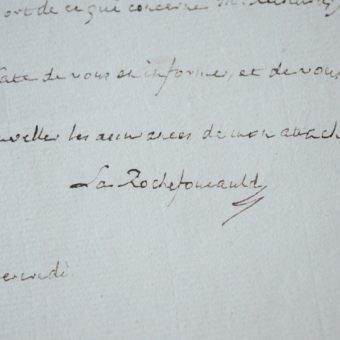 ort de ce qui concerne M.
hâte de vous en informer, et de vous
uveller les assurances de mon attach
La Rochefoucauld
ercredi